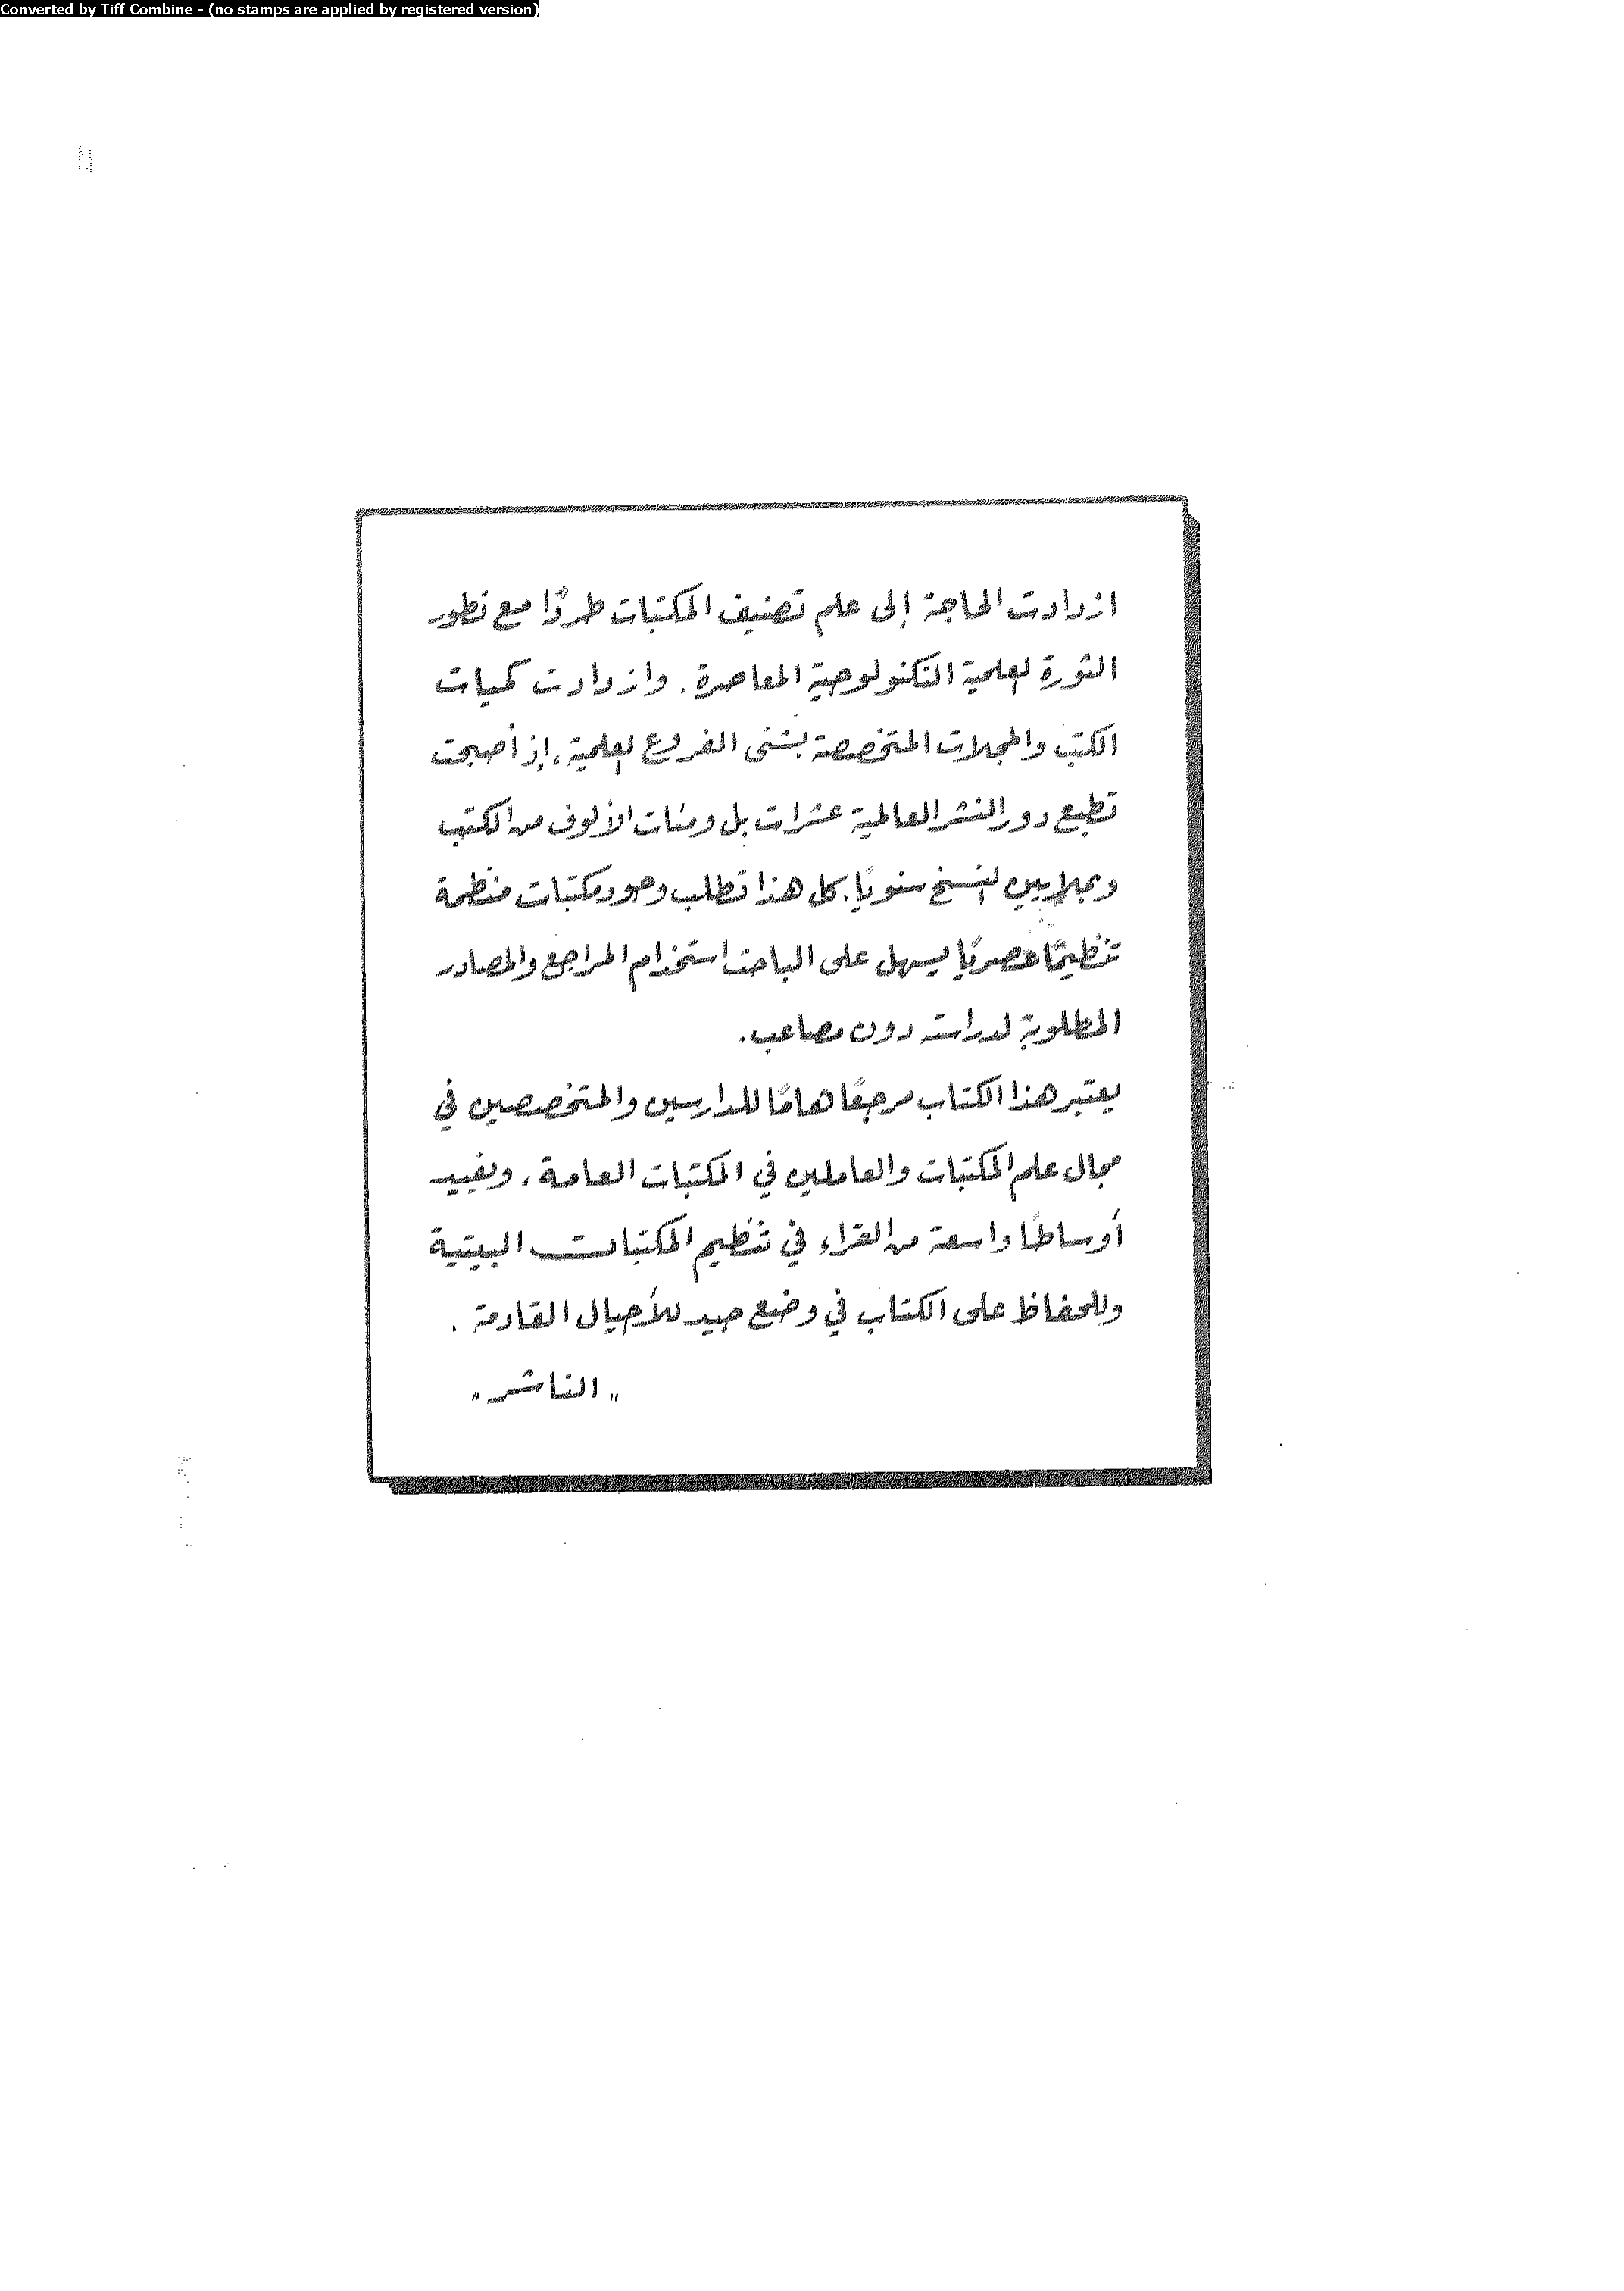 Converted by Tiff Combine - (no stamps are applied by registered version)
ازدادت الحاجة إلى علم تصنيف المكتبات طردًا مع تطور
الثورة العلمية التكنولوجية المعاصرة. وازدادت كميات
الكتب والمجلات المتخصصة بشتى الفروع العلمية، إذ أصبحت
تطبع دور النشر العالمية عشرات بل ومئات الألوف من الكتب
وبملايين النسخ سنويًا. كل هذا تطلب وجود مكتبات منظمة
تنظيمًا عصريًا يسهل على الباحث استخدام المراجع والمصادر
المطلوبة لدراسته دون مصاعب.
يعتبر هذا الكتاب مرجعًا هامًا للدارسين والمتخصصين في
مجال علم المكتبات والعاملين في المكتبات العامة، ويفيد
أوساطًا واسعة من القراء في تنظيم المكتبات البيتية
وللحفاظ على الكتاب في وضع جيد للأجيال القادمة.
"الناشر"